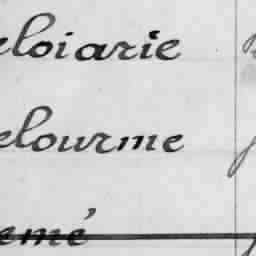 eloiarie
elourme
emé